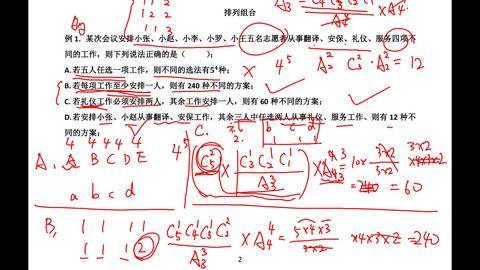 排列组合
例 1. 某次会议安排小张、小赵、小李、小罗、小王五名志愿者从事翻译、安保、礼仪、服务四项不
同的工作，则下列说法正确的是（ ）：
A.若五人任选一项工作，则不同的选法有5⁴种；
B.若每项工作至少安排一人，则有 240 种不同的方案；
C.若礼仪工作必须安排两人，其余工作安排一人，则有 60 种不同的方案；
D.若安排小张、小赵从事翻译、安保工作，其余三人中任选两人从事礼仪、服务工作，则有 12 种不
同的方案；
× 4⁵
A₂² C₃² · A₂² = 12
A、 4 4 4 4 4
A B C D E 4⁵
a b c d
C.
C₅² × C₃¹ C₂¹ C₁¹ / A₃³ × A₃³
= 60
B、 1 1 1 1
1 1 1 2
C₅¹ C₄¹ C₃¹ C₂² / A₃³ × A₄⁴ = 5×4×3 / 3×2 ×4×3×2 = 240
2